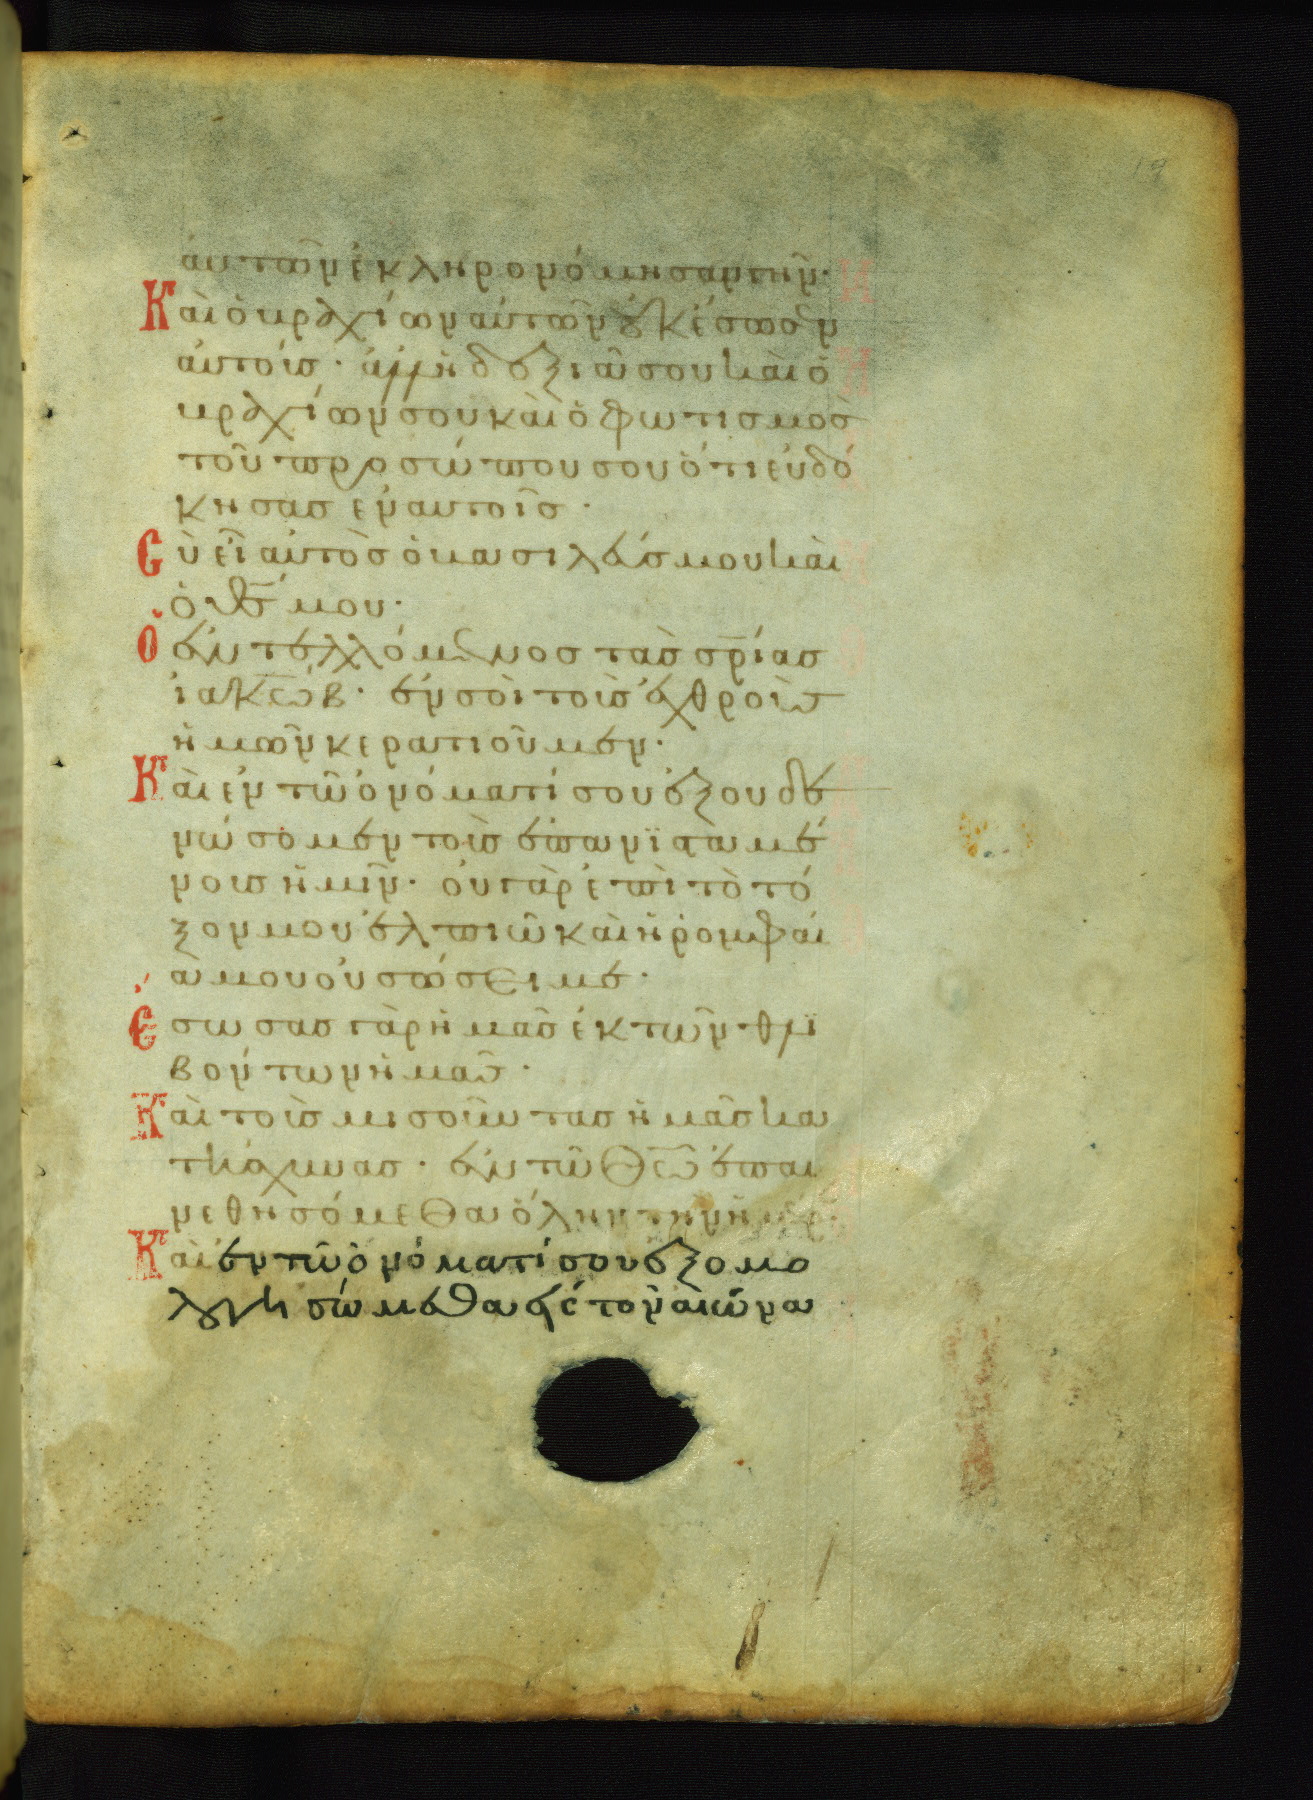 αυτῶν ἐκληρονόμησαν γῆν·
Καὶ ὁ βραχίων αὐτῶν οὐκ ἔσωσεν
αὐτούσ· ἀλλ' ἡ δεξιᾶ σου καὶ ὁ
βραχίων σου καὶ ὁ φωτισμοσ
τοῦ προσώπου σου ὅτι εὐδό
κησασ ἐν αυτοῖσ·
Σὺ εἶ αὐτὸσ ὁ βασιλεύσ μου καὶ
ὁ θσ μου·
Ὁ ἐντελλόμενοσ τὰσ σρίασ
ἰακώβ· ἐν σοὶ τοὺσ ἐχθροὺσ
ἡμῶν κερατιοῦμεν·
Καὶ ἐν τῶ ὀνόματί σου ἐξουδε
νώσομεν τοὺσ ἐπανϊσταμέ
νουσ ἡμῖν· ου γὰρ ἐπὶ τὸ τό
ξον μου ἐλπιῶ καὶ ἡ ῥομφαί
α μου οὐ σώσει με·
Ἔσωσασ γὰρ ἡμᾶσ ἐκ τῶν θλι
βόντων ἡμᾶσ·
Καὶ τοὺσ μισοῦντασ ἡμᾶσ κα
τήσχυνασ· ἐν τῶ Θεῶ ἐπαι
νεθησόμεθα ὅλην τὴν ἡμέρ
Καὶ ἐν τῶ ὀνόματί σου ἐξομο
λογησώμεθα εἰσ τον αἰῶνα